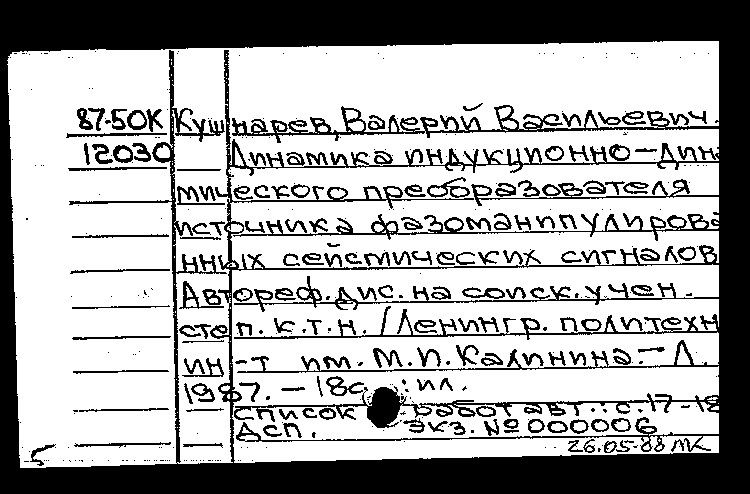 87-50К Кушнарев, Валерий Васильевич.
12030 Динамика индукционно-дина
мического преобразователя
источника фазоманипулирова
нных сейсмических сигналов
Автореф. дис. на соиск. учен.
степ. к.т.н. / Ленингр. политехн
ин-т им. М.И. Калинина. - Л.
1987. - 18с : ил.
Список работ авт.: с. 17-18
ДСП. Экз. № 000006
26.05-88 МК